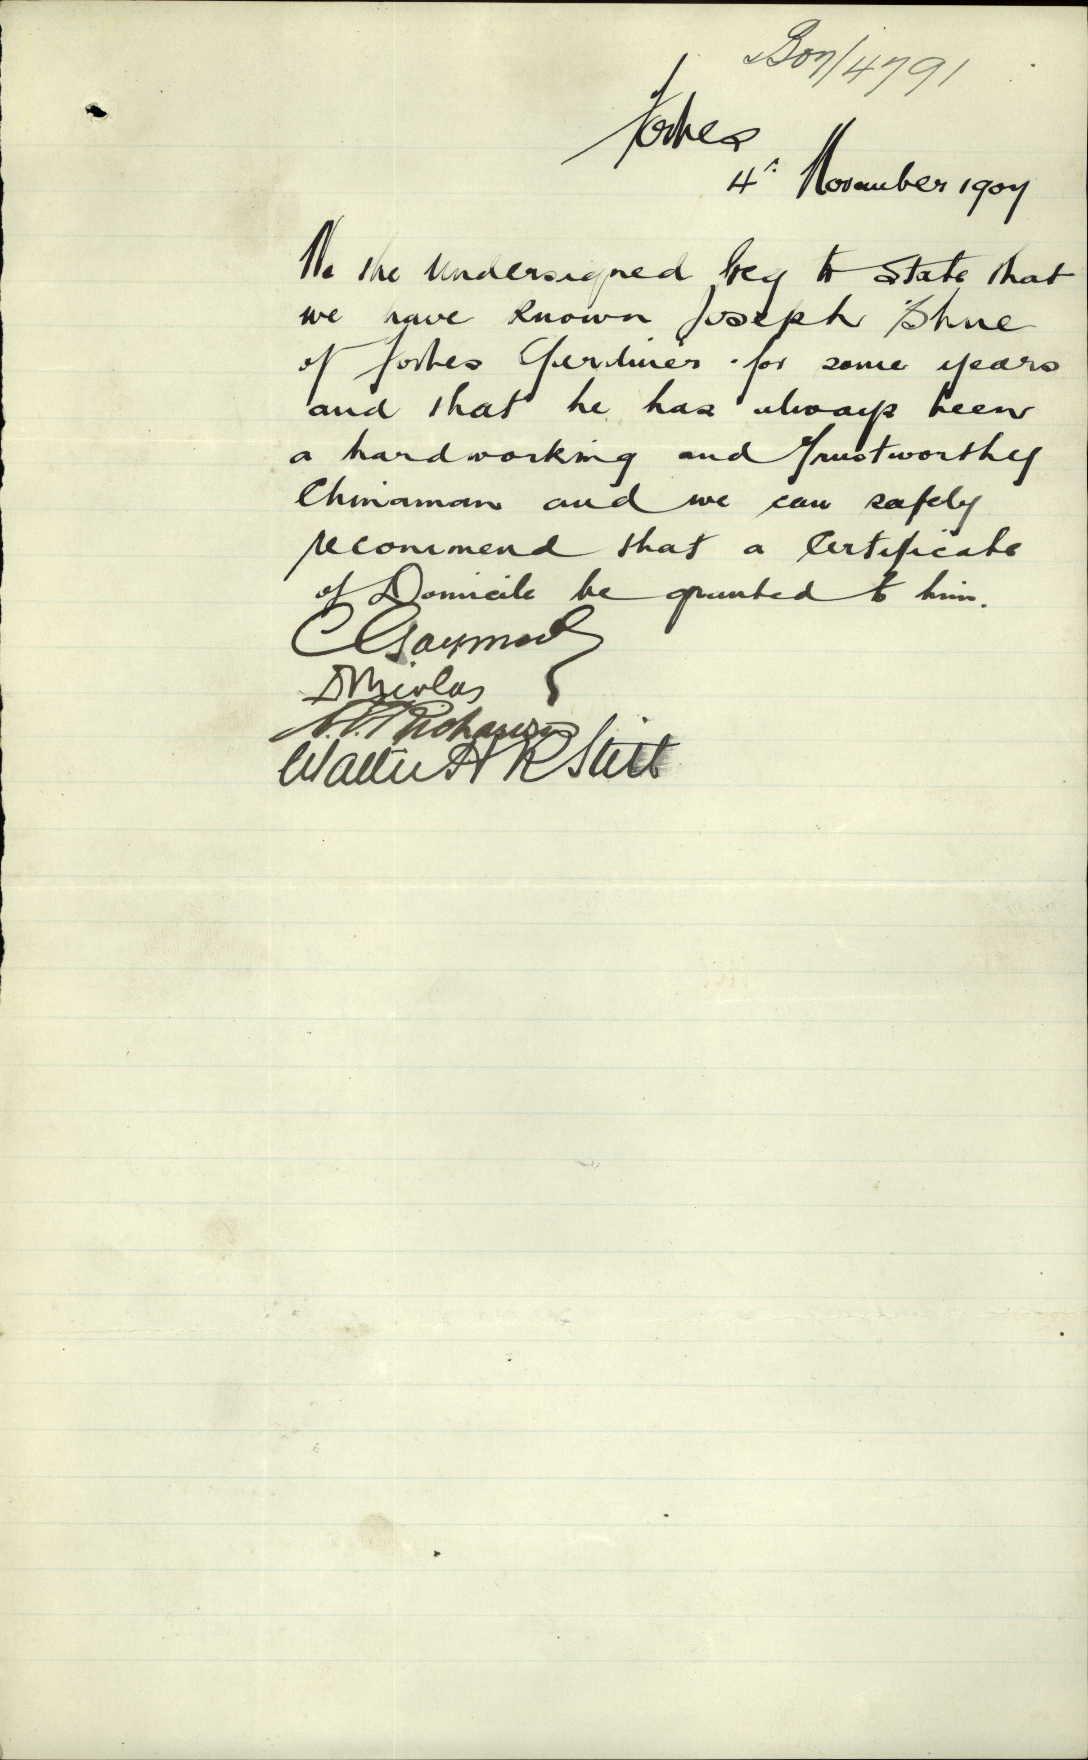 07/4791
Forbes
4th November 1907
We the undersigned beg to state that
we have known Joseph Shue
of Forbes Gardiner for some years
and that he has always been
a hardworking and trustworthy
Chinaman and we can safely
recommend that a Certificate
of Domicile be granted to him.
C Gaymond
Nicolas
Walter H R Stitt